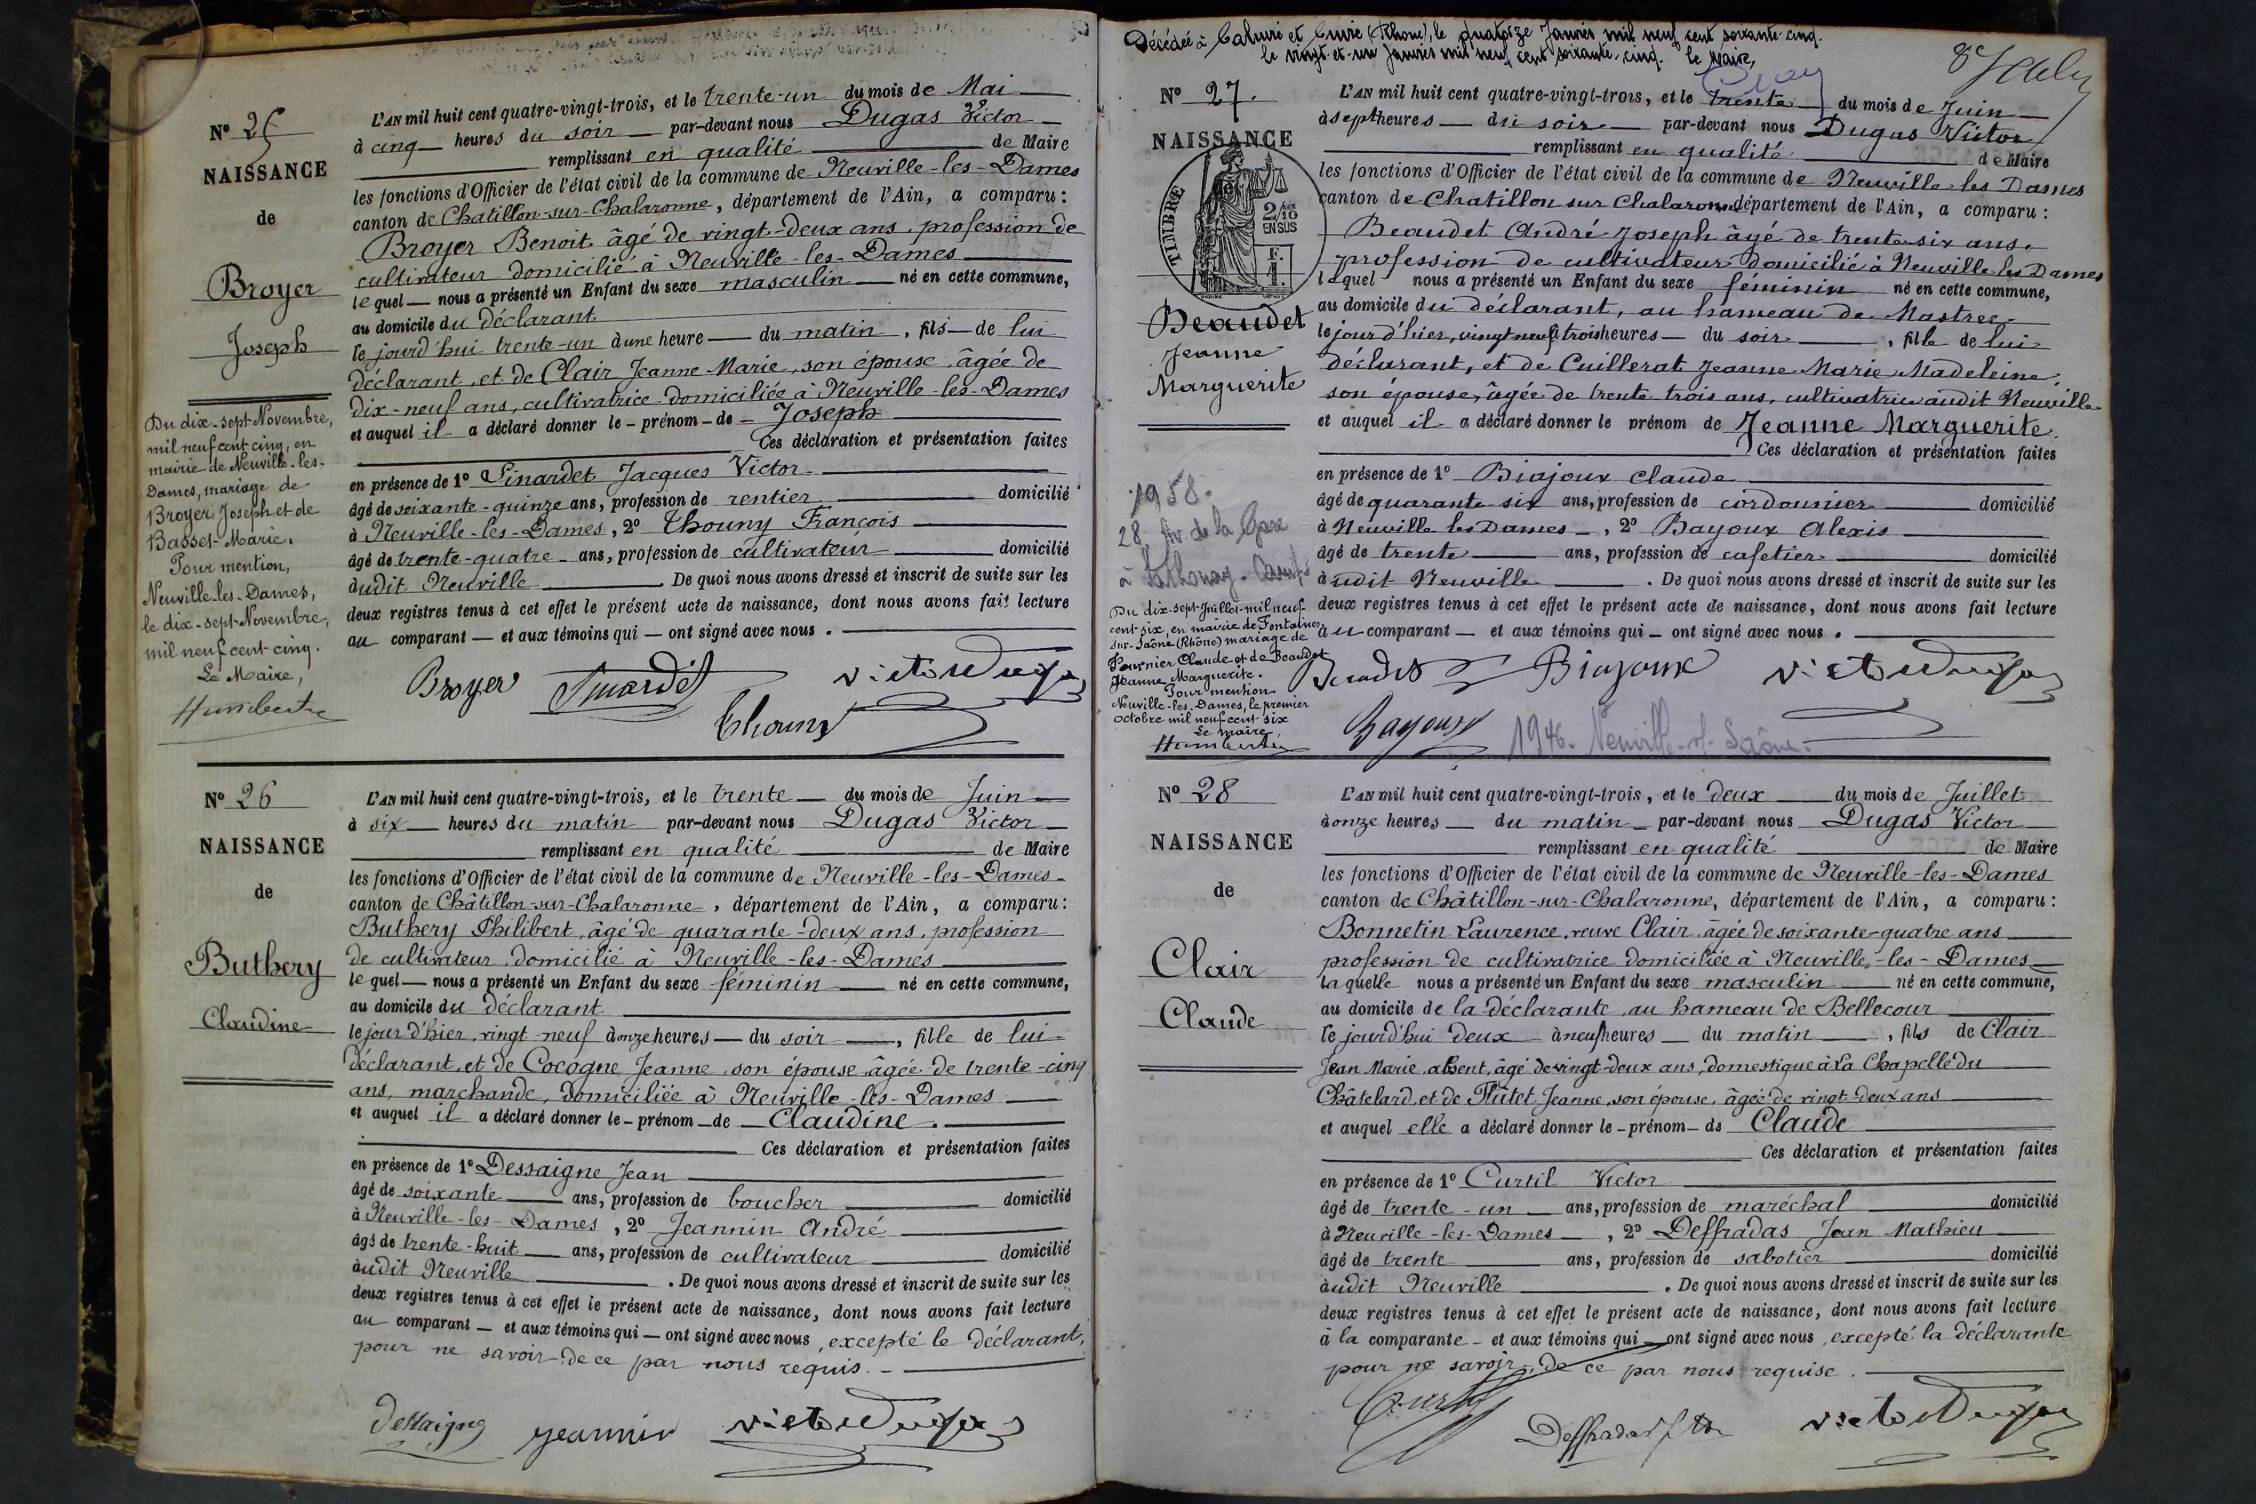 N° 25
NAISSANCE
de
Broyer
Joseph
Du dix-sept Novembre,
mil neuf cent cinq, en
mairie de Neuville-les-
Dames, mariage de
Broyer Joseph et de
Basset Marie.
Pour mention,
Neuville-les-Dames,
le dix-sept Novembre,
mil neuf cent cinq.
Le Maire,
Humbert
L'AN mil huit cent quatre-vingt-trois, et le trente-un du mois de Mai
à cinq heures du soir par-devant nous Dugas Victor
remplissant en qualité de Maire
les fonctions d'Officier de l'état civil de la commune de Neuville-les-Dames
canton de Chatillon-sur-Chalaronne, département de l'Ain, a comparu :
Broyer Benoit âgé de vingt-deux ans, profession de
cultivateur domicilié à Neuville-les-Dames
lequel nous a présenté un Enfant du sexe masculin né en cette commune,
au domicile du déclarant
le jourd'hui trente-un à une heure du matin, fils de lui
déclarant, et de Clair Jeanne Marie, son épouse, âgée de
dix-neuf ans, cultivatrice domiciliée à Neuville-les-Dames
et auquel il a déclaré donner le prénom de Joseph
Ces déclaration et présentation faites
en présence de 1° Sinardet Jacques Victor
âgé de soixante-quinze ans, profession de rentier domicilié
à Neuville-les-Dames, 2° Thouny François
âgé de trente-quatre ans, profession de cultivateur domicilié
audit Neuville. De quoi nous avons dressé et inscrit de suite sur les
deux registres tenus à cet effet le présent acte de naissance, dont nous avons fait lecture
au comparant et aux témoins qui ont signé avec nous.
Broyer Sinardet Victor Dugas
Thouny
N° 26
NAISSANCE
de
Buthery
Claudine
L'AN mil huit cent quatre-vingt-trois, et le trente du mois de Juin
à six heures du matin par-devant nous Dugas Victor
remplissant en qualité de Maire
les fonctions d'Officier de l'état civil de la commune de Neuville-les-Dames
canton de Châtillon-sur-Chalaronne, département de l'Ain, a comparu :
Buthery Philibert, âgé de quarante-deux ans, profession
de cultivateur domicilié à Neuville-les-Dames
lequel nous a présenté un Enfant du sexe féminin né en cette commune,
au domicile du déclarant
le jour d'hier, vingt neuf à onze heures du soir, fille de lui
déclarant, et de Cocogne Jeanne, son épouse âgée de trente-cinq
ans, marchande, domiciliée à Neuville-les-Dames
et auquel il a déclaré donner le prénom de Claudine.
Ces déclaration et présentation faites
en présence de 1° Dessaigne Jean
âgé de soixante ans, profession de boucher domicilié
à Neuville-les-Dames, 2° Jeannin André
âgé de trente-huit ans, profession de cultivateur domicilié
audit Neuville. De quoi nous avons dressé et inscrit de suite sur les
deux registres tenus à cet effet le présent acte de naissance, dont nous avons fait lecture
au comparant et aux témoins qui ont signé avec nous, excepté le déclarant,
pour ne savoir de ce par nous requis.
Dessaigne Jeannin Victor Dugas
Décédée à Caluire et Cuire (Rhône), le quatorze Janvier mil neuf cent soixante-cinq.
le vingt-et-un Janvier mil neuf cent soixante-cinq. le Maire,
N° 27.
NAISSANCE
TIMBRE
2/10
EN SUS
Beaudet
Jeanne
Marguerite
1958.
28, Av de la Gare
à Sathonay-Camp
Du dix-sept Juillet mil neuf
cent six, en mairie de Fontaines-
sur-Saône (Rhône) mariage de
Fournier Claude et de Beaudet
Jeanne Marguerite.
Pour mention
Neuville-les-Dames, le premier
octobre mil neuf cent six
Le maire
Humbert
L'AN mil huit cent quatre-vingt-trois, et le trente du mois de Juin
à sept heures du soir par-devant nous Dugas Victor
remplissant en qualité de Maire
les fonctions d'Officier de l'état civil de la commune de Neuville les Dames
canton de Chatillon sur Chalaronne département de l'Ain, a comparu :
Beaudet André Joseph âgé de trente-six ans,
profession de cultivateur domicilié à Neuville les Dames
lequel nous a présenté un Enfant du sexe féminin né en cette commune,
au domicile du déclarant, au hameau de Mastrec
le jour d'hier, vingt neuf à trois heures du soir, fille de lui
déclarant, et de Cuillerat Jeanne Marie Madeleine,
son épouse, âgée de trente trois ans, cultivatrice audit Neuville
et auquel il a déclaré donner le prénom de Jeanne Marguerite.
Ces déclaration et présentation faites
en présence de 1° Biajoux Claude
âgé de quarante six ans, profession de cordonnier domicilié
à Neuville les Dames, 2° Bayoux Alexis
âgé de trente ans, profession de cafetier domicilié
audit Neuville. De quoi nous avons dressé et inscrit de suite sur les
deux registres tenus à cet effet le présent acte de naissance, dont nous avons fait lecture
au comparant et aux témoins qui ont signé avec nous.
Beaudet Biajoux Victor Dugas
Bayoux 1946. Neuville-s/-Saône.
N° 28
NAISSANCE
de
Clair
Claude
L'AN mil huit cent quatre-vingt-trois, et le deux du mois de Juillet
à onze heures du matin par-devant nous Dugas Victor
remplissant en qualité de Maire
les fonctions d'Officier de l'état civil de la commune de Neuville-les-Dames
canton de Châtillon-sur-Chalaronne, département de l'Ain, a comparu :
Bonnetin Laurence, veuve Clair, âgée de soixante-quatre ans
profession de cultivatrice domiciliée à Neuville-les-Dames
laquelle nous a présenté un Enfant du sexe masculin né en cette commune,
au domicile de la déclarante, au hameau de Bellecour
le jourd'hui deux à neuf heures du matin, fils de Clair
Jean Marie, absent, âgé de vingt-deux ans, domestique à la Chapelle du
Châtelard, et de Flûtet Jeanne, son épouse, âgée de vingt-deux ans
et auquel elle a déclaré donner le prénom de Claude
Ces déclaration et présentation faites
en présence de 1° Curtil Victor
âgé de trente-un ans, profession de maréchal domicilié
à Neuville-les-Dames, 2° Deffradas Jean Mathieu
âgé de trente ans, profession de sabotier domicilié
audit Neuville. De quoi nous avons dressé et inscrit de suite sur les
deux registres tenus à cet effet le présent acte de naissance, dont nous avons fait lecture
à la comparante et aux témoins qui ont signé avec nous, excepté la déclarante
pour ne savoir, de ce par nous requise.
Curtil Deffradas Victor Dugas